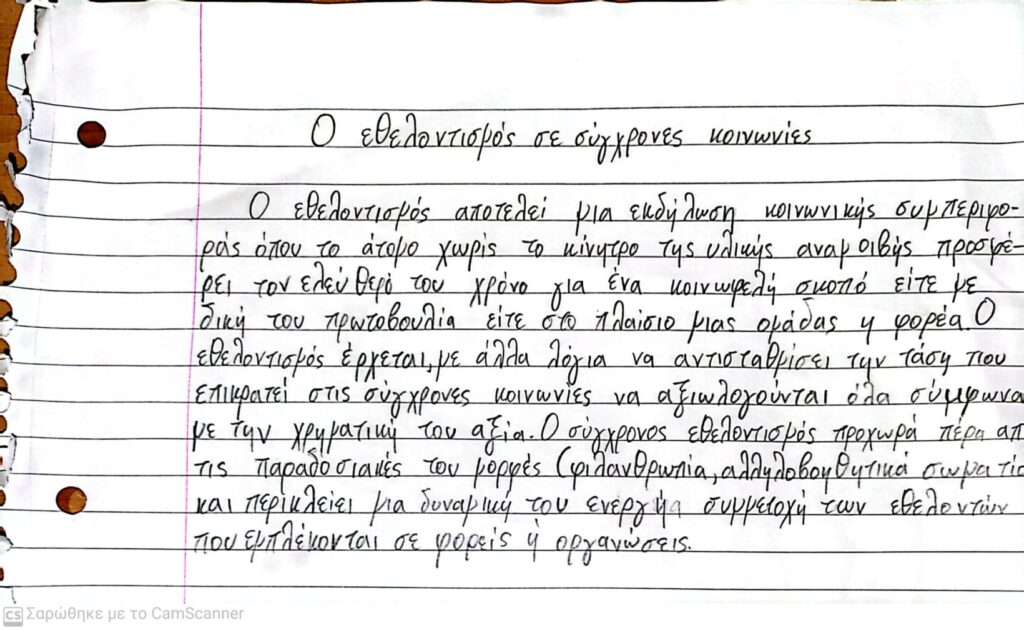 Ο εθελοντισμός σε σύγχρονες κοινωνίες
Ο εθελοντισμός αποτελεί μια εκδήλωση κοινωνικής συμπεριφο-
ράς όπου το άτομο χωρίς το κίνητρο της υλικής αναμοιβής προσφέ-
ρει τον ελεύθερό του χρόνο για ένα κοινωφελή σκοπό είτε με
δική του πρωτοβουλία είτε στο πλαίσιο μιας ομάδας ή φορέα. Ο
εθελοντισμός έρχεται, με άλλα λόγια να αντισταθμίσει την τάση που
επικρατεί στις σύγχρονες κοινωνίες να αξιωλογούνται όλα σύμφωνα
με την χρηματική του αξία. Ο σύγχρονος εθελοντισμός προχωρά πέρα απ
τις παραδοσιακές του μορφές (φιλανθρωπία, αλληλοβοηθητικά σωματία
και περικλείει μια δυναμική του συμμετοχή των εθελοντών
που εμπλέκονται σε φορείς ή οργανώσεις.
CS Σαρώθηκε με το CamScanner